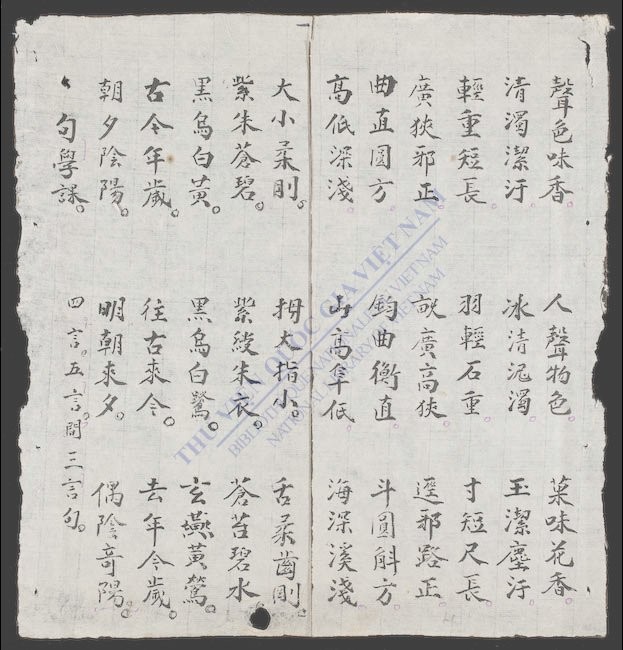 句學課。 四言。五言。間三言句。
朝夕陰陽。 明朝來夕。 偶陰奇陽。
古今年歲。 往古來今。 去年今歲。
黑烏白黃。 黑烏白鷺。 玄燕黃鶯。
紫朱蒼碧。 紫綬朱衣。 蒼苔碧水
大小柔剛。 拇大指小。 舌柔齒剛。
高低深淺。 山高阜低 海深溪淺。
曲直圓方 鈎曲衡直。 斗圓斛方
廣狹邪正。 畝廣高狹 逕邪路正
輕重短長。 羽輕石重 寸短尺長
清濁潔汙 冰清泥濁 玉潔塵汙。
聲色味香。 人聲物色。 菜味花香。
THƯ VIỆN QUỐC GIA VIỆT NAM
BIBLIOTHÈQUE NATIONALE DU VIETNAM
NATIONAL LIBRARY OF VIETNAM